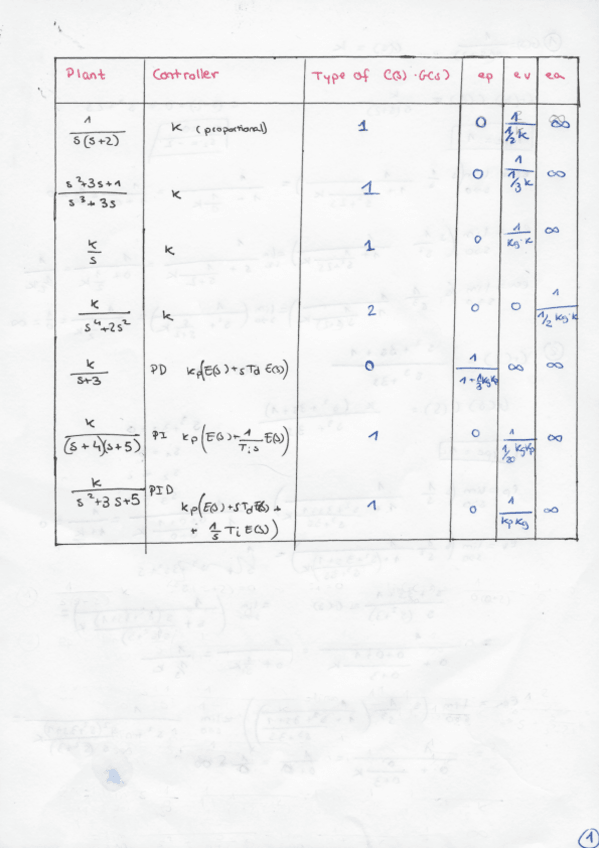 Plant Controller Type of C(s)·G(s) ep ev ea
1/(s(s+2)) K (proportional) 1 0 1/(1/2 K) ∞
(s²+3s+1)/(s³+3s) K 1 0 1/(1/3 K) ∞
K/s K 1 0 1/(Kg·K) ∞
K/(s⁴+2s²) K 2 0 0 1/(1/2 Kg·K)
K/(s+3) PD Kp(E(s)+sTd E(s)) 0 1/(1+1/3 KgKp) ∞ ∞
K/((s+4)(s+5)) PI Kp(E(s)+1/(Ti s) E(s)) 1 0 1/(1/20 KgKp) ∞
K/(s²+3s+5) PID Kp(E(s)+sTdE(s)+
+ 1/s Ti E(s)) 1 0 1/(KpKg) ∞
1